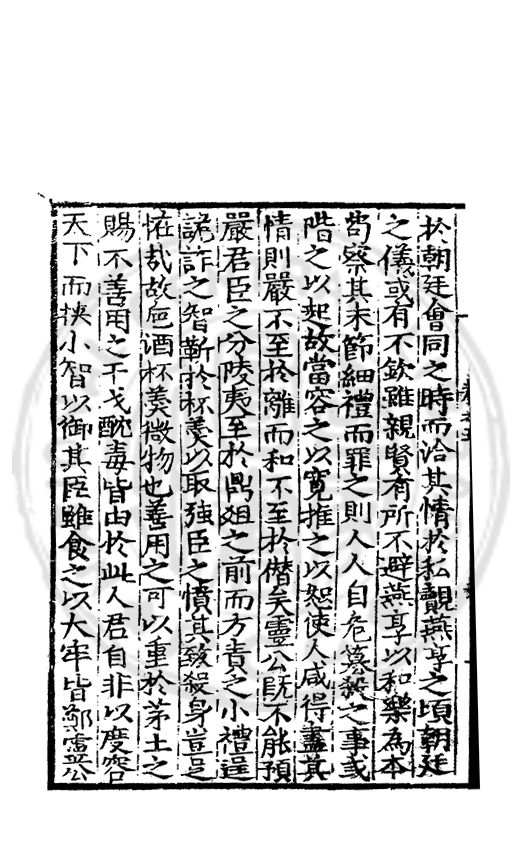 於朝廷會同之時而洽其情於私覿燕享之頃朝廷
之儀或有不欽雖親賢有所不避燕享以和樂為本
苟察其末節細禮而罪之則人人自危簒弒之事或
階之以起故當容之以寬推之以恕使人咸得盡其
情則嚴不至於離而和不至於僣矣靈公旣不能預
嚴君臣之分陵夷至於鼎俎之前而方責之小禮逞
詭詐之智靳於杯羹以取強臣之憤其致殺身豈足
恠哉故巵酒杯羹微物也善用之可以重於茅土之
賜不善用之干戈酖毒皆由於此人君自非以度容
天下而挾小智以御其臣雖食之以大牢皆鄭靈公